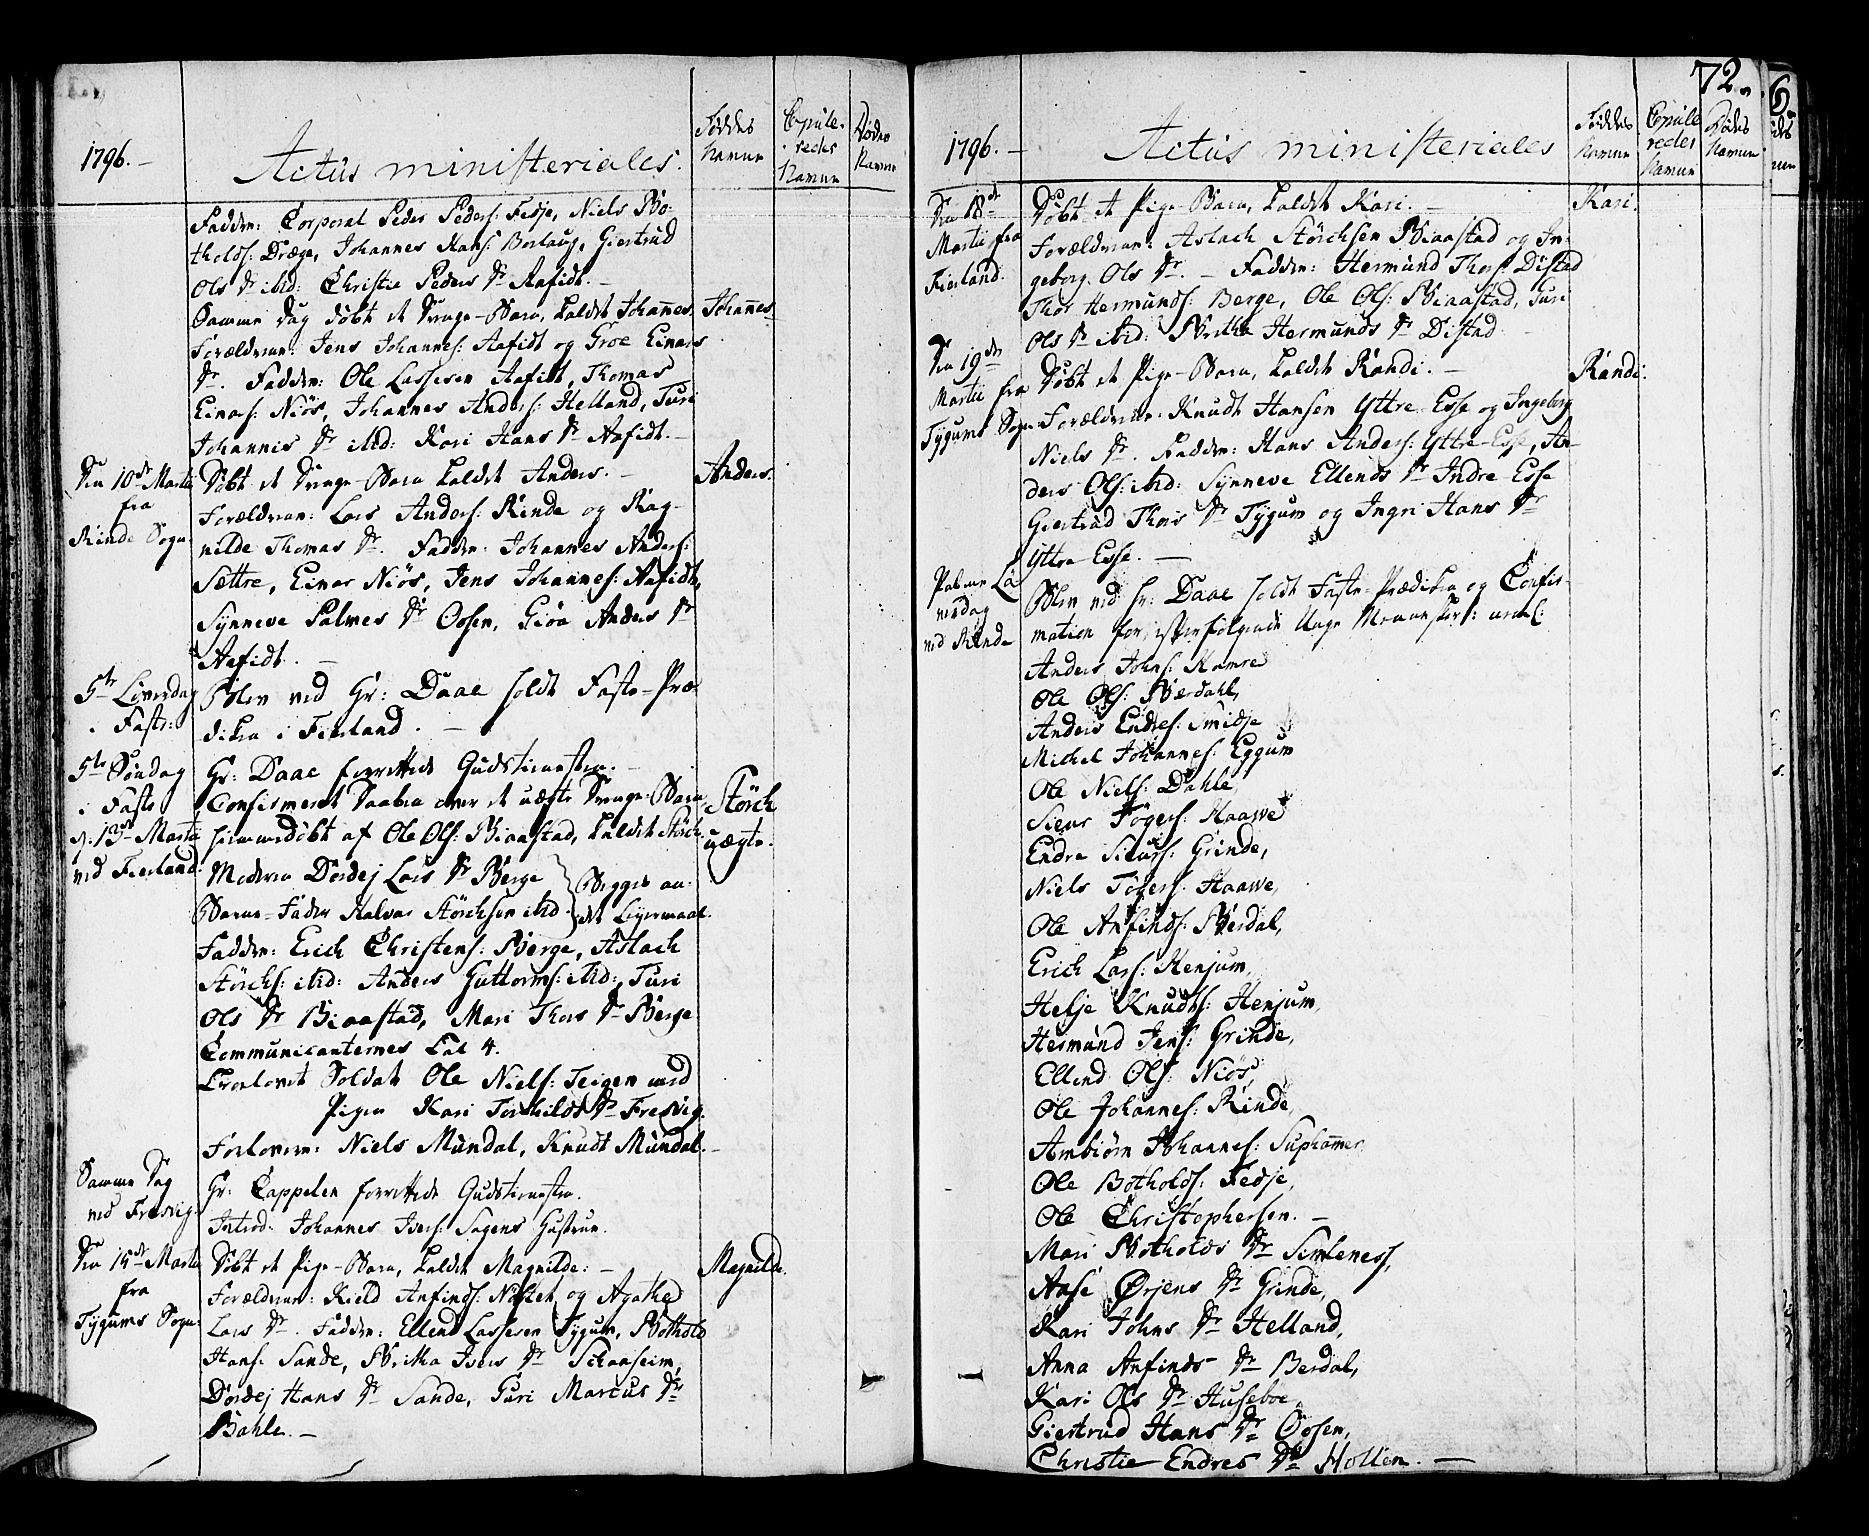 1796. —
Actus ministeriales.
Føddes Navne
Copuleredes Navne
Dødes Navne
Faddere: Corporal Peder Peders: Fedje, Niels Bo-
tholds: Dræge, Johannes Hans: Borlaug, Giertrud
Ols Dr ibid: Christie Peders Dr Aafidt. —
Samme Dag døbt et Drenge-Barn, kaldet Johannes.
Johannes.
Forældrene: Jens Johannes: Aafidt og Groe Einars
Dr. Faddere: Ole Lassesen Aafidt, Thomas
Einas: Niös, Johannes Anders: Helland, Turi
Johannis Dr ibid: Kari Hans Dr Aafidt. —
Den 10de Martii
fra
Rinde Sogn
Døbt et Drenge-Barn kaldet Anders. —
Anders.
Forældrene: Lars Anders: Rinde og Rag-
nilde Thomas Dr. Faddere: Johannes Anders:
Sættre, Einar Niös, Jens Johannes: Aafidt,
Synneve Palmes Dr Ossen, Giöa Anders Dr
Aafidt. —
5te Löverdag
i Faste:
Blev ved Hr: Daae holdt Faste-Præ-
diken i Fierland. —
5te Søndag
i Faste
d: 13de Martii
ved Fierland
Hr: Daae forrettede Gudstienesten. —
Confirmeret Daaben over et uægte Drenge-Barn
hiemmedøbt af Ole Ols: Biaastad, kaldet Störch.
Störch
uægte.
Moderen Dordej Lars Dr Berge
Barne-Fader Halvar Störchsen ibid.
Begges an-
det Leyermaal.
Faddere: Erich Christens: Berge, Aslach
Störchs: ibid: Anders Guttorms: ibid: Turi
Ols Dr Biaastad, Mari Thors Dr Berge
Communicanternes Tal 4.
Trolovet Soldat Ole Niels: Teigen med
Pigen Kari Torchilds Dr Fresvig.
Forlovere: Niels Mundal, Knudt Mundal. —
Samme Dag
ved Fresvig.
Hr: Cappelen forrettede Gudstienesten.
Introd: Johannes Ivers: Sagens Hustrue.
Den 15de Martii
fra
Tygums Sogn
Døbt et Pige-Barn, kaldet Magnilde: —
Magnilde.
Forældrene: Kield Anfinds: Næsset og Agathe
Lars Dr. Faddere: Ellend Lassesen Tygum, Bothold
Hans: Sande, Britha Ivers Dr Schaaseim,
Dordej Hans Dr Sande, Turi Marcus Dr
Bahle. —
72.
1796. —
Actus ministeriales
Føddes Navne
Copuleredes Navne
Dødes Navne
Den 18de
Martii fra
Fierland.
Døbt et Pige-Barn, kaldet Kari. —
Kari.
Forældrene: Aslach Störchsen Biaastad og In-
geborg Ols Dr. — Faddere: Hermund Thors: Distad
Thor Hermunds: Berge, Ole Ols: Biaastad, Turi
Ols Dr ibid: Britha Hermunds Dr Distad.
Den 19de
Martii fra
Tygums Sogn
Døbt et Pige-Barn, kaldet Randi. —
Randi.
Forældrene: Knudt Hansen Yttre-Esse og Ingeborg
Niels Dr. Faddere: Hans Anders: Yttre-Esse, An-
ders Ols: ibid: Synneve Ellends Dr Indre-Esse
Giertrud Thors Dr Tygum og Ingri Hans Dr
Yttre-Esse. —
Palme Lö-
verdag
ved Rinde
Blev ved Hr: Daae holdt Faste-Prædiken og Confir-
mation for efterfølgende Unge Mennesker: nemlig:
Anders Johns: Hamre
Ole Ols: Bærdahl,
Anders Endres: Smidje
Michel Johannes: Eggum
Ole Niels: Dahle,
Sieur Töger: Haawe
Endre Sieurs: Grinde,
Niels Tögers: Haawe,
Ole Anfinds: Berdal,
Erich Lars: Henjum,
Helje Knudts: Henjum,
Hermund Jens: Grinde,
Ellend Ols: Niös,
Ole Johannes: Rinde,
Ambiörn Johannes: Suphammer
Ole Botholds: Fedje,
Ole Christophersen. —
Mari Botholds Dr Simlenes,
Aase Ørjens Dr Grinde,
Kari Johns Dr Helland,
Anna Anfinds Dr Berdal,
Kari Ols Dr Husebøe,
Giertrud Hans Dr Ossen,
Christie Endres Dr Hollen. —